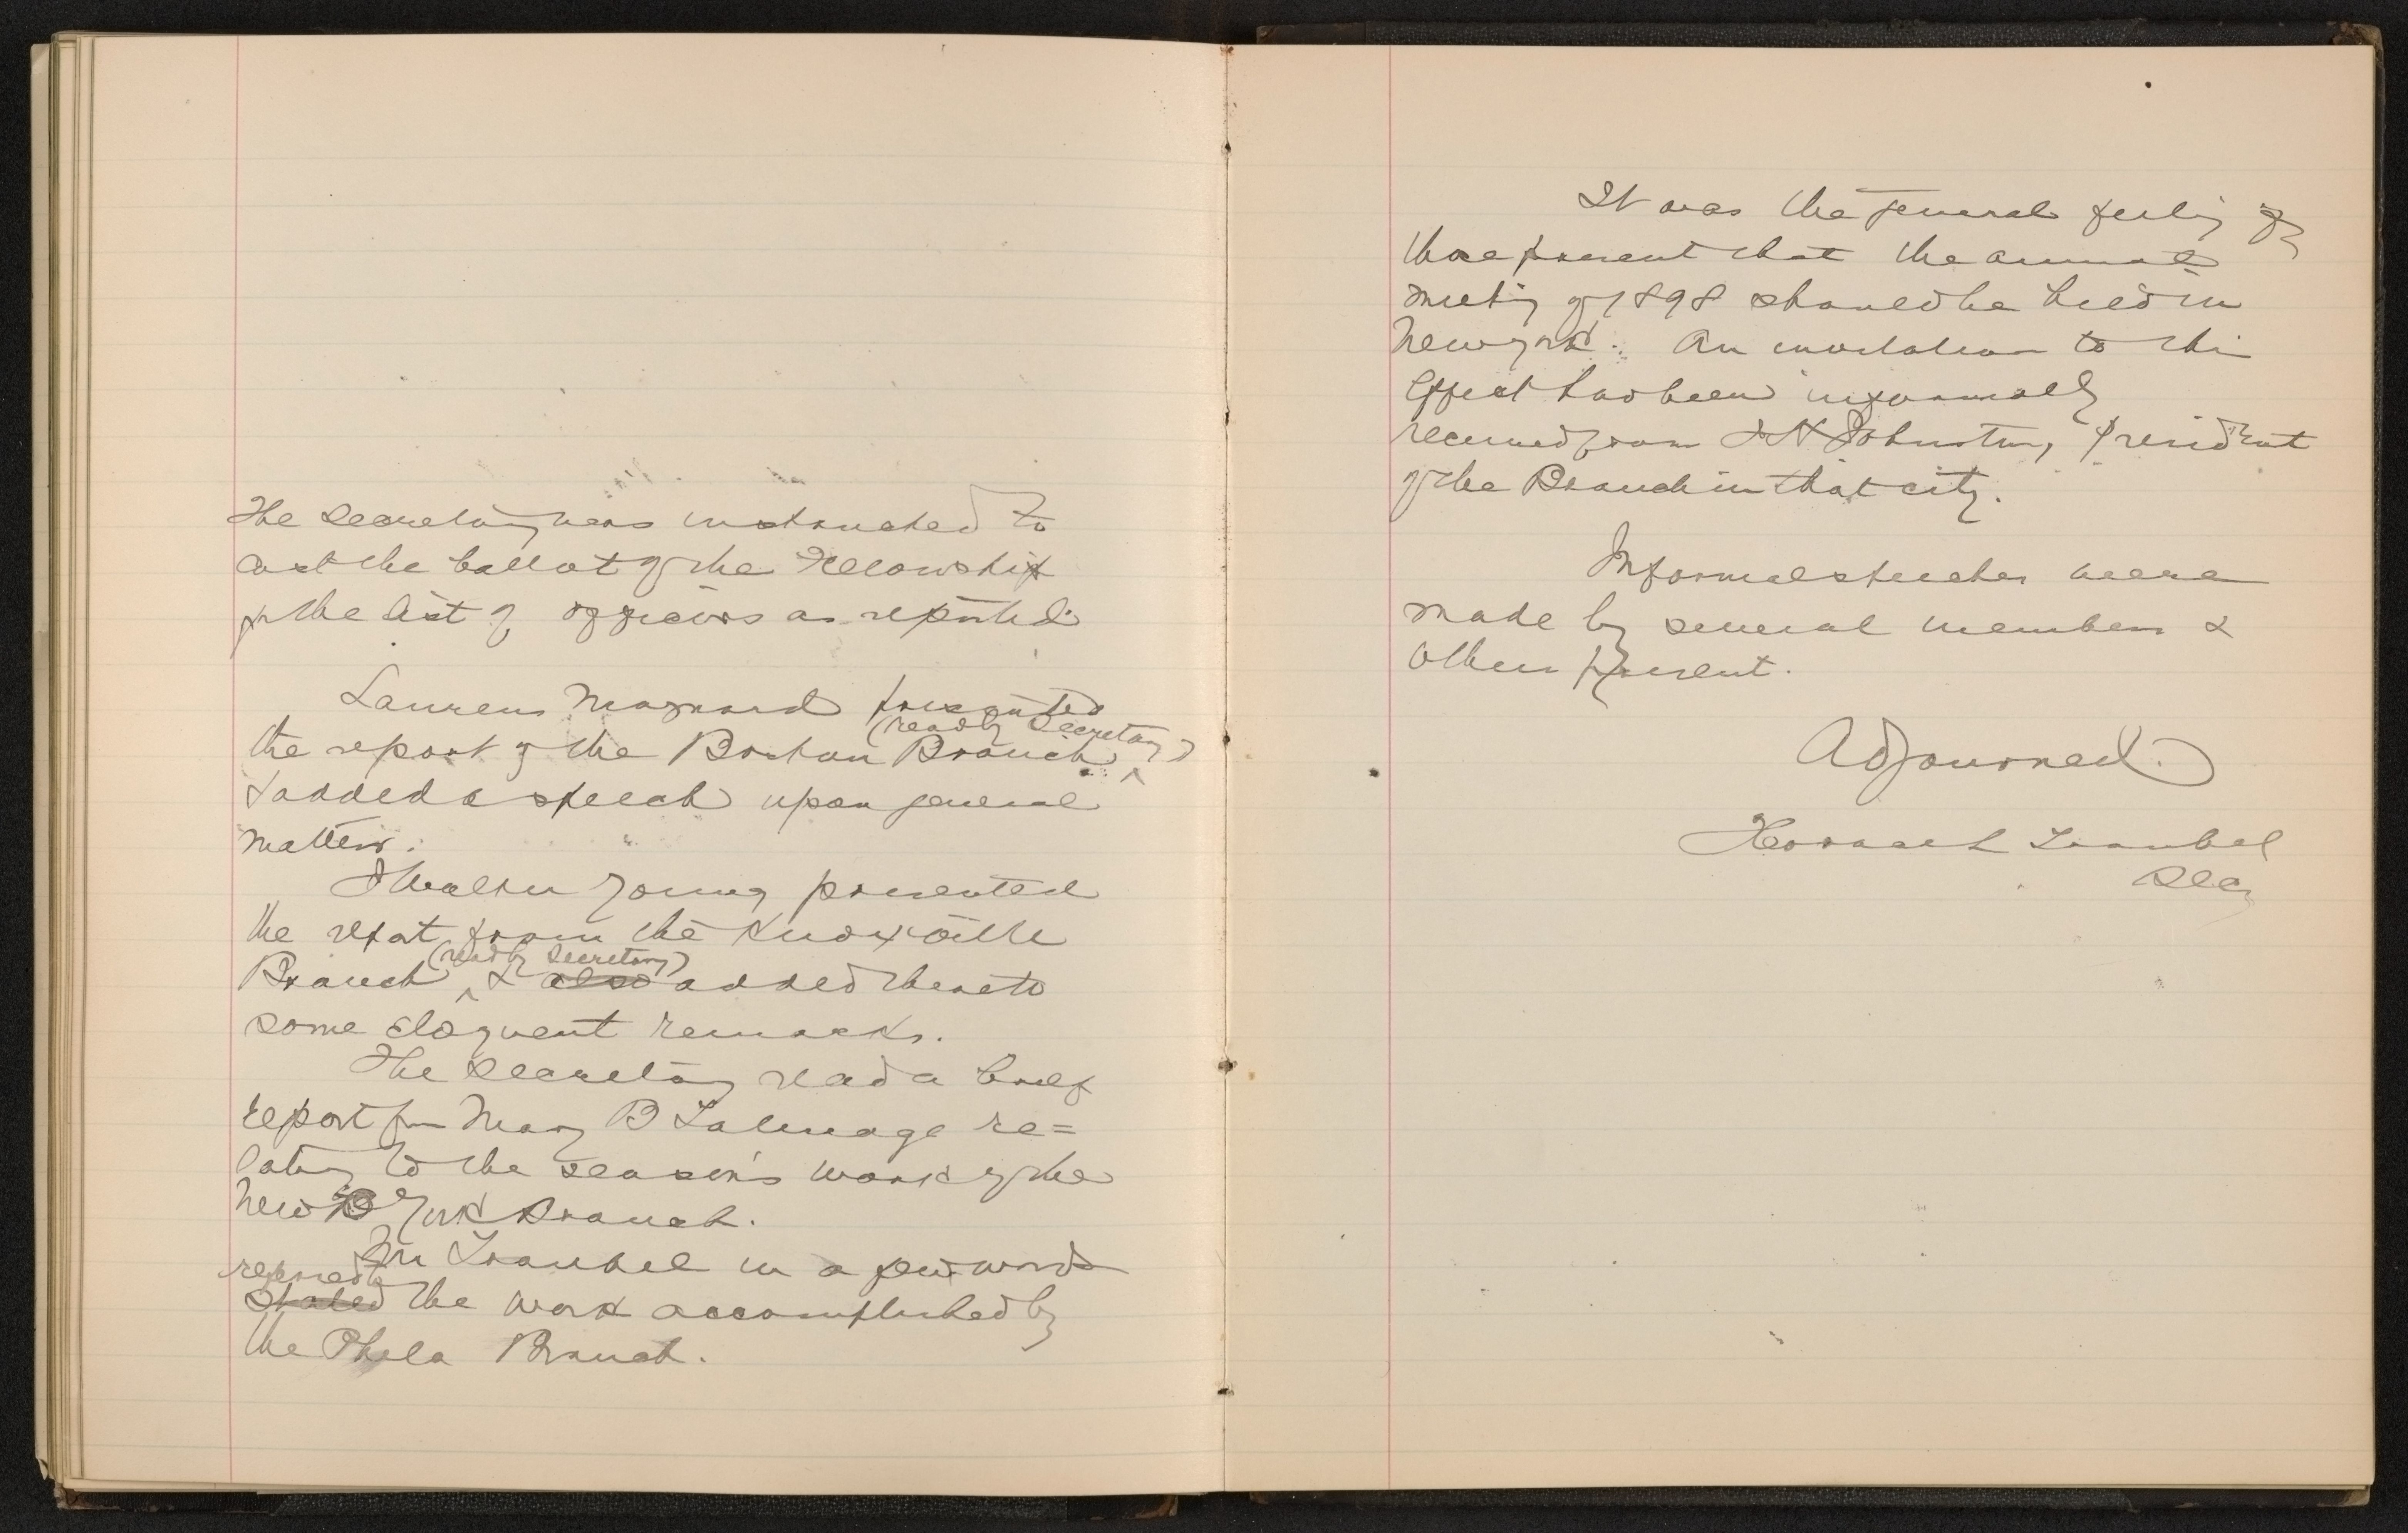 The Secretary was instructed to
cast the ballot of the Fellowship
for the list of officers as reported.
Laurens Maynard presented
(read by Secretary)
the report of the Boston Branch ^
& added a speech upon general
matters.
J Walter Young presented
the report from the Knoxville
(read by Secretary)
Branch ^ & also added thereto
some eloquent remarks.
The Secretary read a brief
report from Mary B Talmage re=
lating to the season's work of the
New York Branch.
Mr Traubel in a few words
reported
stated the work accomplished by
the Phila Branch.
It was the general feeling of
those present that the annual
meeting of 1898 should be held in
New York. An invitation to this
effect had been informally
received from J H Johnston, President
of the Branch in that city.
Informal speeches were
made by several members &
others present.
Adjourned.
Horace L Traubel
Secy